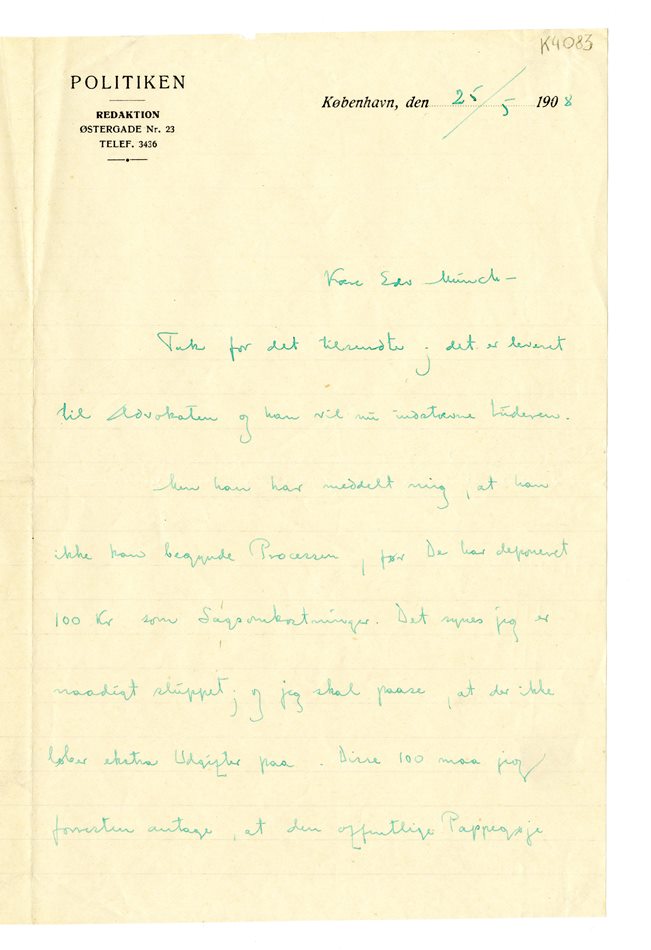 K4083
POLITIKEN
REDAKTION
ØSTERGADE Nr. 23
TELEF. 3436
København, den 25/5 1908
Kære Edv Munch –
Tak for det tilsendte; det er leveret
til Advokaten og han vil nu indstævne Luderen.
Men han har meddelt mig, at han
ikke kan begynde Processen, før De har deponeret
100 Kr som Sagsomkostninger. Det synes jeg er
naadigt sluppet; og jeg skal paase, at der ikke
løber ekstra Udgifter paa. Disse 100 maa jeg
forresten antage, at den offentlige Pappegøje